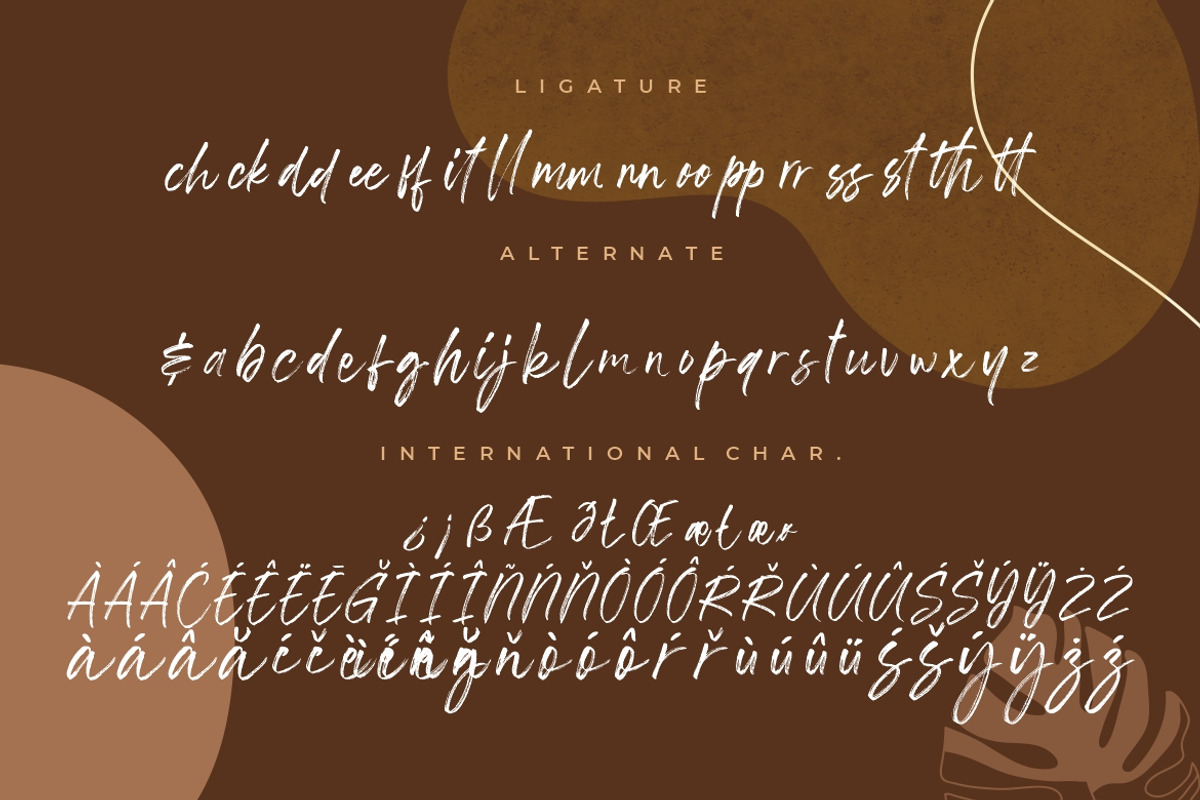 LIGATURE
ch ck dd ee ff it ll mm nn oo pp rr ss st th tt
ALTERNATE
& a b c d e f g h i j k l m n o p q r s t u v w x y z
INTERNATIONAL CHAR.
¿ ¡ ß Æ Ł Œ æ ł œ
À Á Â Ć É Ê Ë Ē Ğ Ì Í Î Ñ Ń Ň Ò Ó Ô Ŕ Ř Ù Ú Û Ś Š Ý Ÿ Ż Ź
à á â ă ć č ň ò ó ô ŕ ř ù ú û ü ś š ý ÿ ż ź